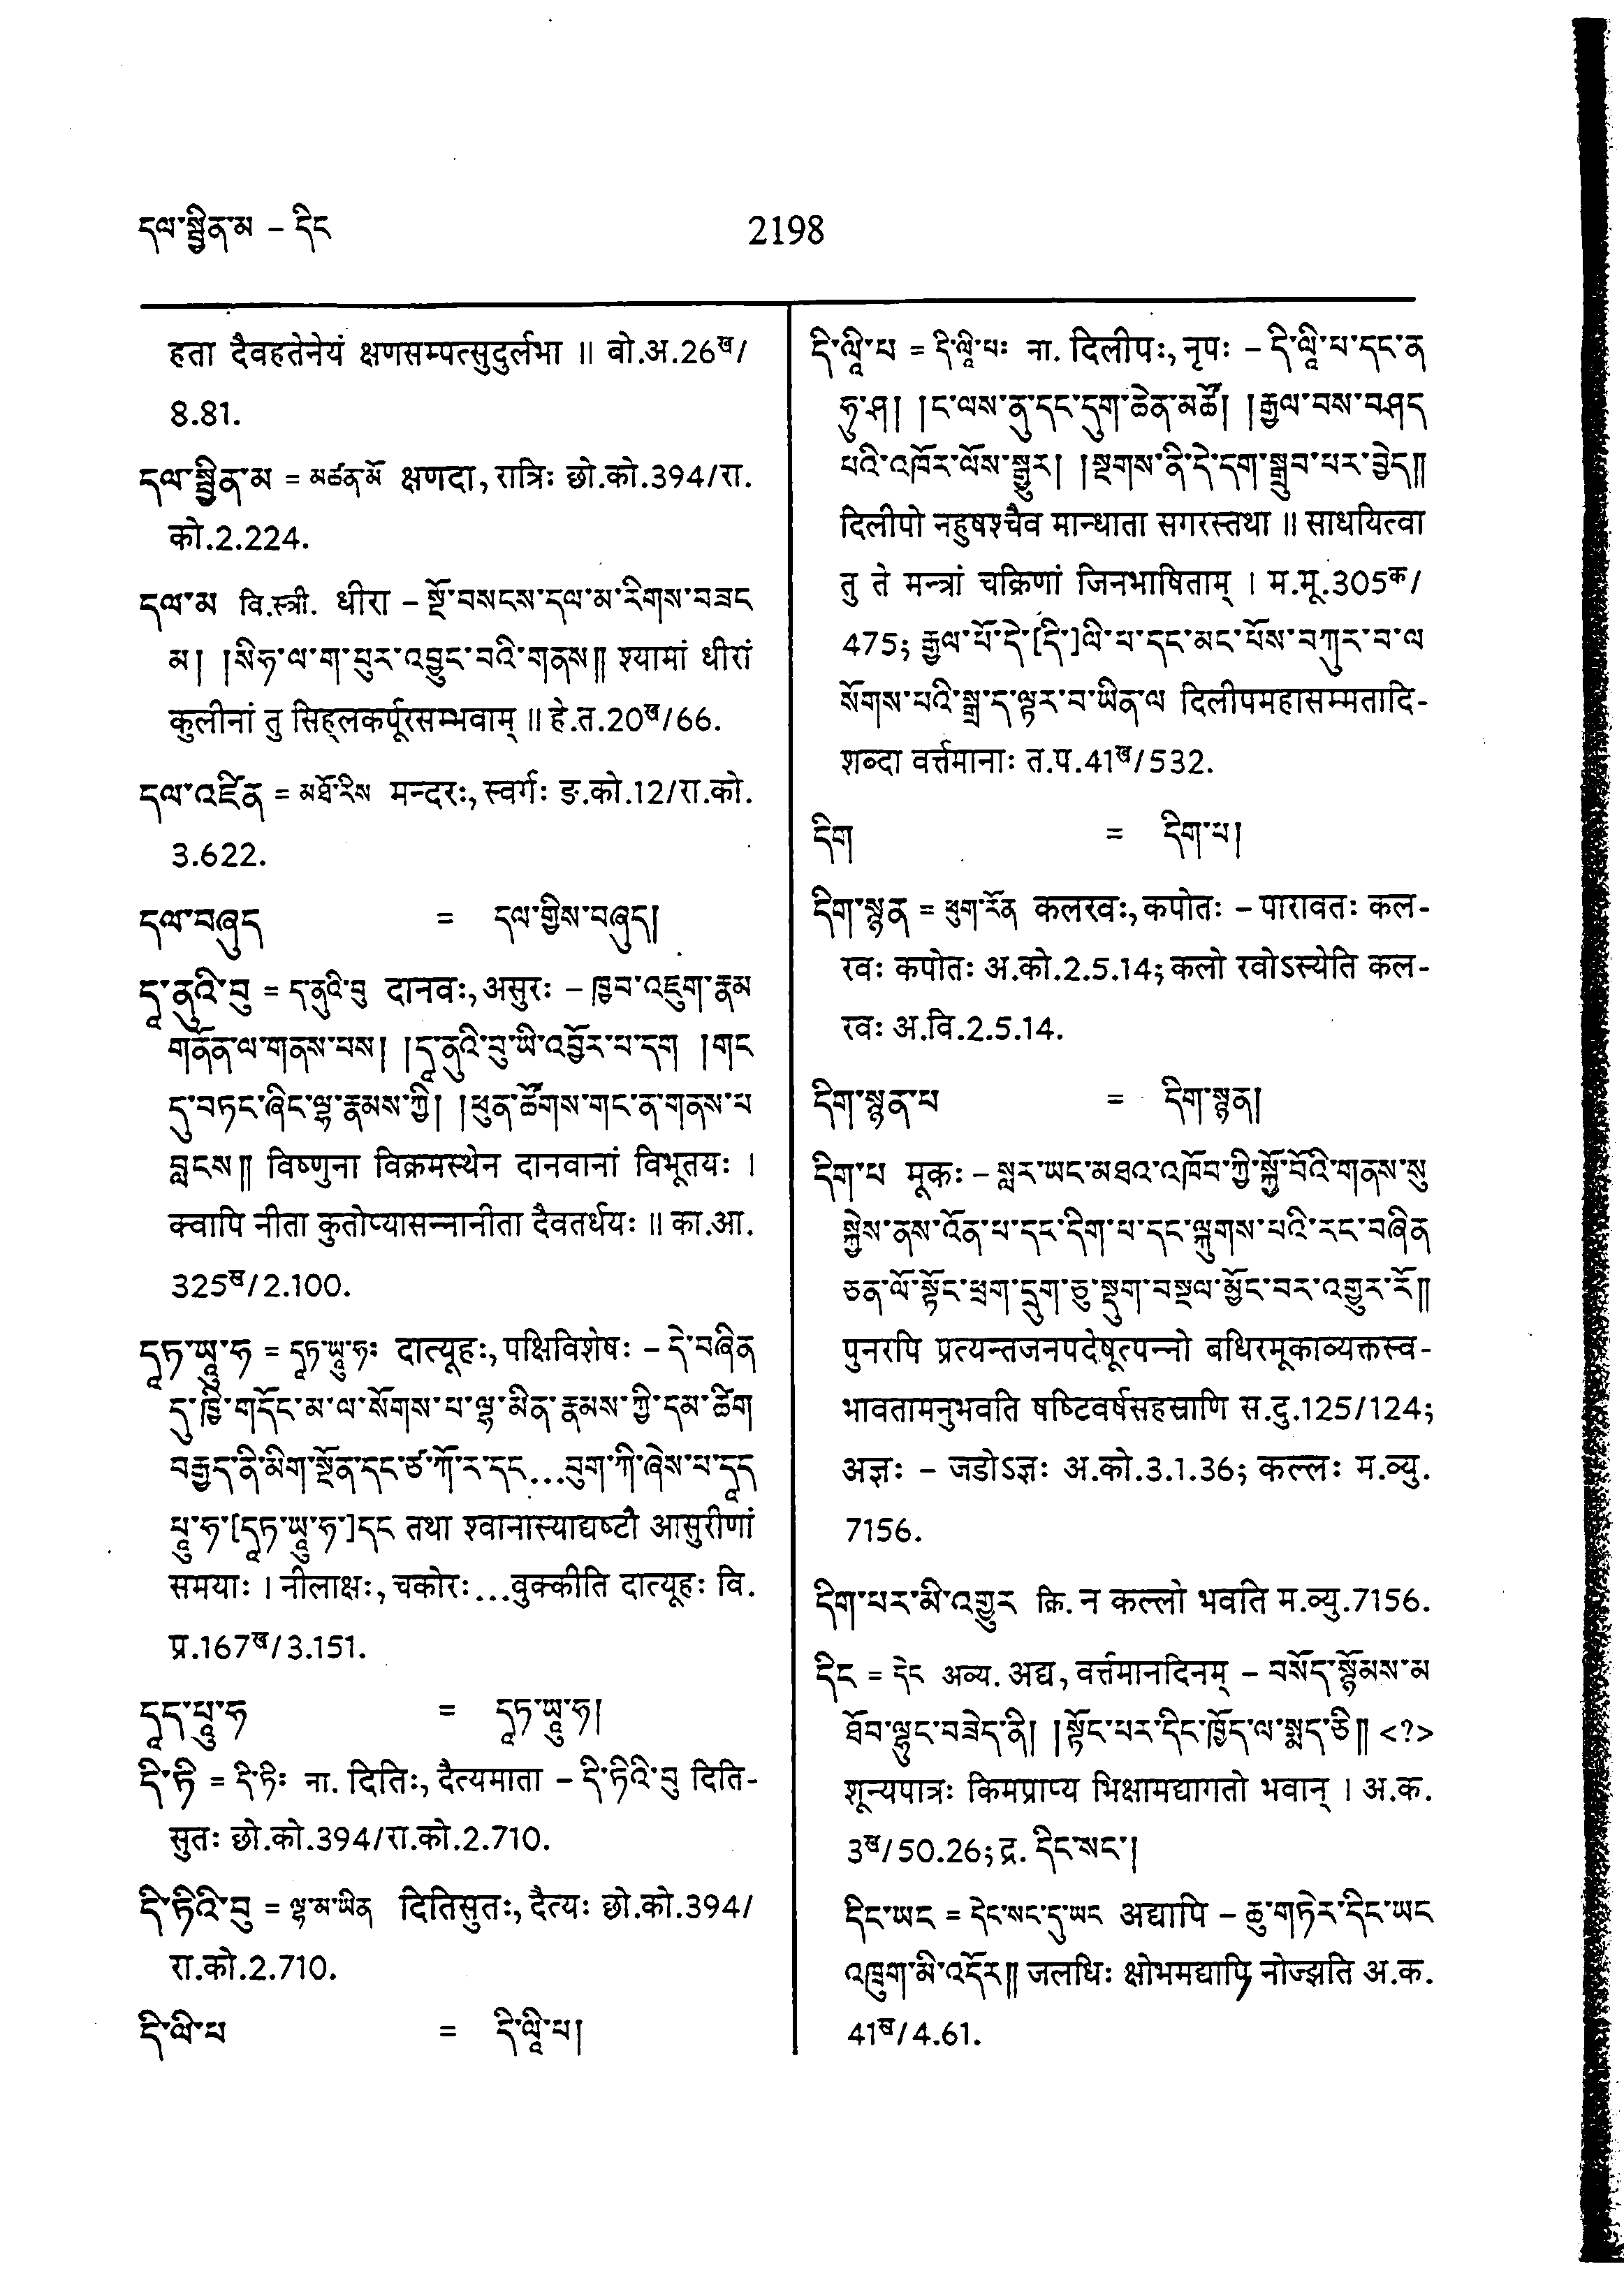 དལ་སྦྱིན་མ – དིང
2198
हता दैवहतेनेयं क्षणसम्पत्सुदुर्लभा ॥ बो.अ.26ख/
8.81.
དལ་སྦྱིན་མ = མཚན་མོ क्षणदा, रात्रिः छो.को.394/रा.
को.2.224.
དལ་མ वि.स्त्री. धीरा – སྔོ་བསངས་དལ་མ་རིགས་བཟང
མ། །སིཧ་ལ་ག་བུར་འབྱུང་བའི་གནས༎ श्यामां धीरां
कुलीनां तु सिह्लकर्पूरसम्भवाम् ॥ हे.त.20ख/66.
དལ་འཛིན = མཐོ་རིས मन्दरः, स्वर्गः ङ.को.12/रा.को.
3.622.
དལ་བཞུད = དལ་གྱིས་བཞུད།
དཱ་ནུའི་བུ = ད་ནུའི་བུ दानवः, असुरः – ཁྱབ་འཇུག་རྣམ
གནོན་ལ་གནས་པས། །དཱ་ནུའི་བུ་ཡི་འབྱོར་པ་དག །གང
དུ་བཏང་ཞིང་ལྷ་རྣམས་ཀྱི། །ཕུན་ཚོགས་གང་ན་གནས་པ
བླངས༎ विष्णुना विक्रमस्थेन दानवानां विभूतयः ।
क्वापि नीता कुतोप्यासन्नानीता दैवतर्धयः ॥ का.आ.
325ख/2.100.
དཱཏ་ཡཱུ་ཧ = དཱཏ་ཡཱུ་ཧཿ दात्यूहः, पक्षिविशेषः – དེ་བཞིན
དུ་ཁྱི་གདོང་མ་ལ་སོགས་པ་ལྷ་མིན་རྣམས་ཀྱི་དམ་ཚིག
བརྒྱད་ནི་མིག་སྔོན་དང་ཙ་ཀོ་ར་དང...བུག་ཀི་ཞེས་པ་དཱད
པཱུ་ཧ་[དཱཏ་ཡཱུ་ཧ་]དང तथा श्वानास्याद्यष्टौ आसुरीणां
समयाः । नीलाक्षः, चकोरः...वुक्कीति दात्यूहः वि.
प्र.167ख/3.151.
དཱད་པཱུ་ཧ = དཱཏ་ཡཱུ་ཧ།
དི་ཏི = དི་ཏིཿ ना. दितिः, दैत्यमाता – དི་ཏིའི་བུ दिति-
सुतः छो.को.394/रा.को.2.710.
དི་ཏིའི་བུ = ལྷ་མ་ཡིན दितिसुतः, दैत्यः छो.को.394/
रा.को.2.710.
དི་ལི་པ = དི་ལཱི་པ།
དི་ལཱི་པ = དི་ལཱི་པཿ ना. दिलीपः, नृपः – དི་ལཱི་པ་དང་ན
ཧུ་ཤ། །ང་ལས་ནུ་དང་དུག་ཆེན་མཚོ། །རྒྱལ་བས་བཤད
པའི་འཁོར་ལོས་སྒྱུར། །སྔགས་ནི་དེ་དག་སྒྲུབ་པར་བྱེད༎
दिलीपो नहुषश्चैव मान्धाता सगरस्तथा ॥ साधयित्वा
तु ते मन्त्रां चक्रिणां जिनभाषिताम् । म.मू.305क/
475; རྒྱལ་པོ་དེ་[དི་]ལི་པ་དང་མང་པོས་བཀུར་བ་ལ
སོགས་པའི་སྒྲ་ད་ལྟར་བ་ཡིན་ལ दिलीपमहासम्मतादि-
शब्दा वर्त्तमानाः त.प.41ख/532.
དིག = དིག་པ།
དིག་སྙན = ཕུག་རོན कलरवः, कपोतः – पारावतः कल-
रवः कपोतः अ.को.2.5.14; कलो रवोऽस्येति कल-
रवः अ.वि.2.5.14.
དིག་སྙན་པ = དིག་སྙན།
དིག་པ मूकः – སླར་ཡང་མཐའ་འཁོབ་ཀྱི་སྐྱོ་བོའི་གནས་སུ
སྐྱེས་ནས་འོན་པ་དང་དིག་པ་དང་ལྐུགས་པའི་རང་བཞིན
ཅན་ལོ་སྟོང་ཕྲག་དྲུག་ཅུ་སྡུག་བསྔལ་མྱོང་བར་འགྱུར་རོ༎
पुनरपि प्रत्यन्तजनपदेषूत्पन्नो बधिरमूकाव्यक्तस्व-
भावतामनुभवति षष्टिवर्षसहस्राणि स.दु.125/124;
अज्ञः – जडोऽज्ञः अ.को.3.1.36; कल्लः म.व्यु.
7156.
དིག་པར་མི་འགྱུར क्रि. न कल्लो भवति म.व्यु.7156.
དིང = དེང अव्य. अद्य, वर्त्तमानदिनम् – བསོད་སྙོམས་མ
ཐོབ་ལྷུང་བཟེད་ནི། །སྟོང་པར་དིང་ཁྱོད་ལ་སྨད་ཅི༎ <?>
शून्यपात्रः किमप्राप्य भिक्षामद्यागतो भवान् । अ.क.
3ख/50.26; द्र. དིང་སང་།
དིང་ཡང = དེང་སང་དུ་ཡང अद्यापि – ཆུ་གཏེར་དིང་ཡང
འཁྲུག་མི་འདོར༎ जलधिः क्षोभमद्यापि नोज्झति अ.क.
41ख/4.61.